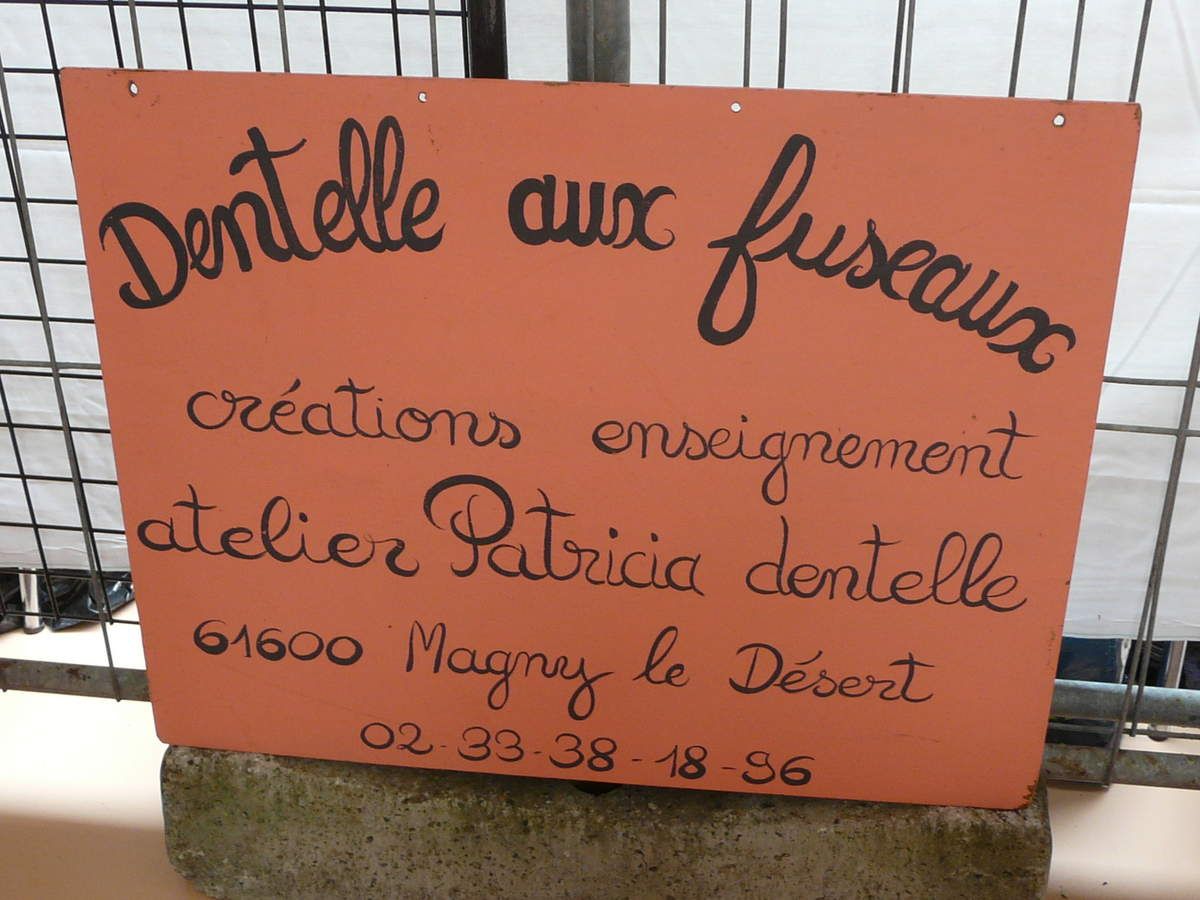 Dentelle aux fuseaux
créations enseignement
atelier Patricia dentelle
61600 Magny le Désert
02-33-38-18-96